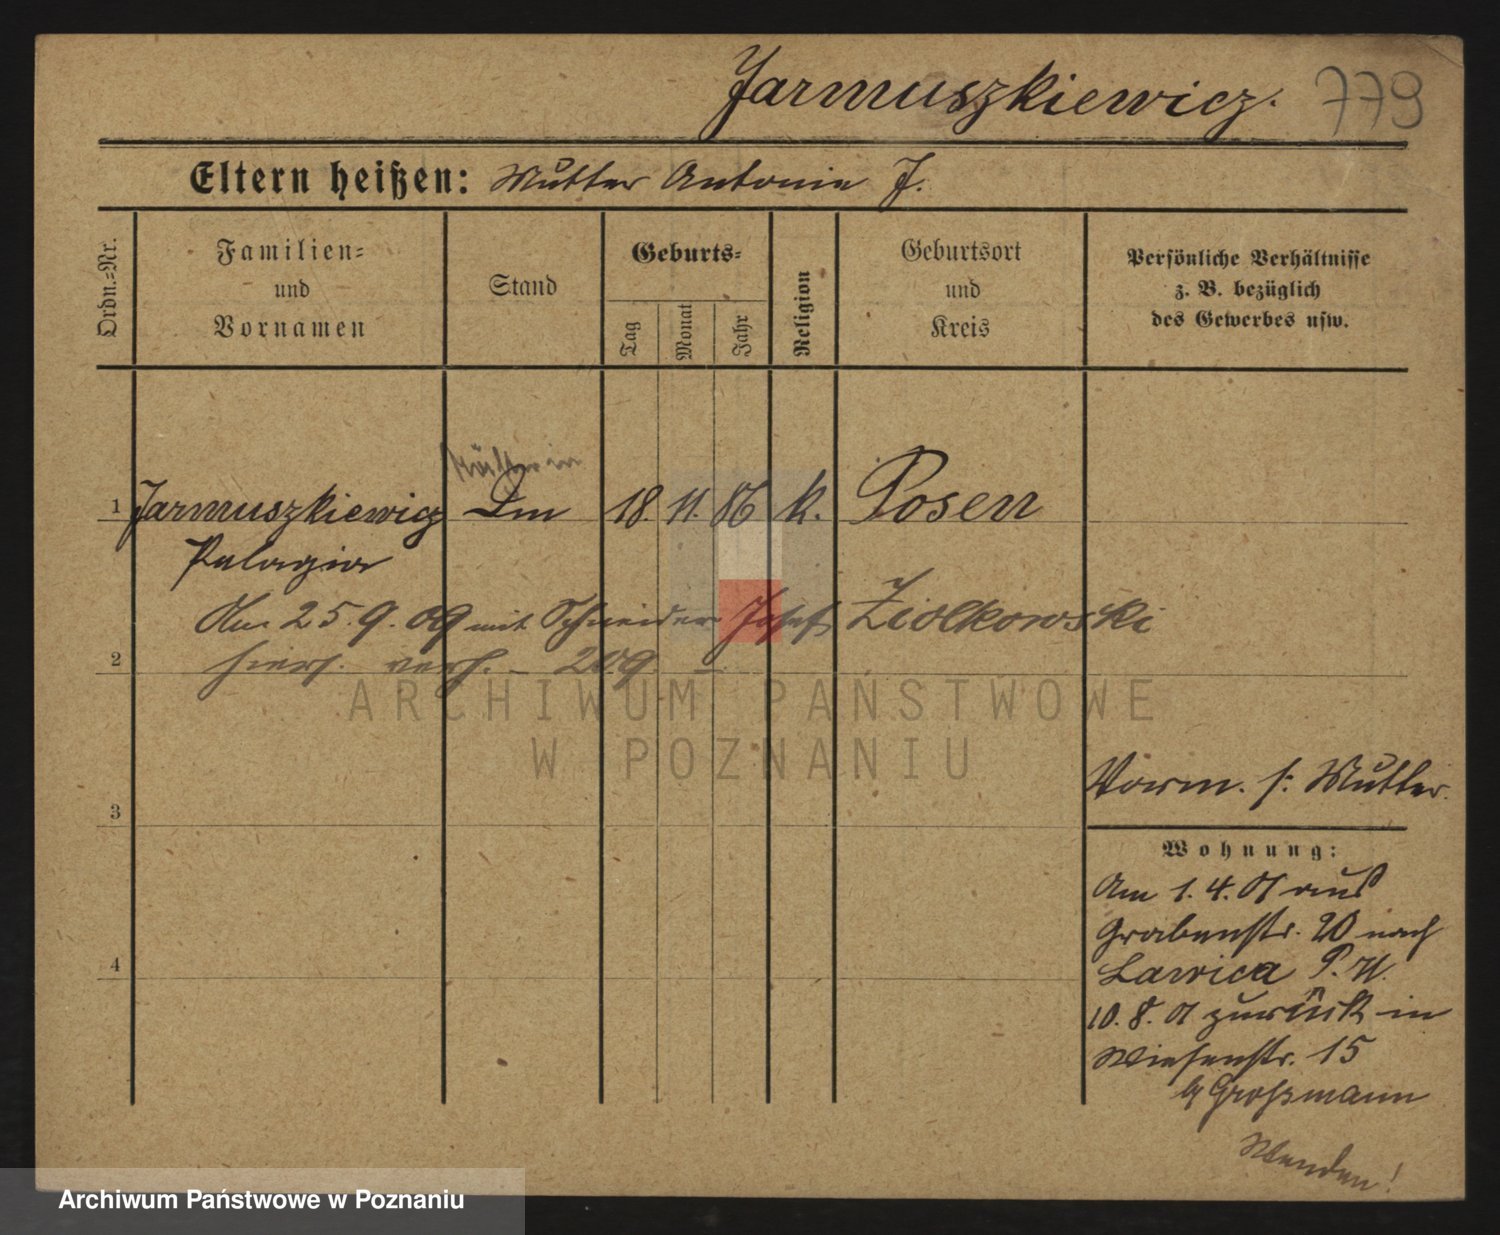 Jarmuszkiewicz. 779
Eltern heißen: Mutter Antonie J.
Ordn.=Nr.
Familien= und Vornamen
Stand
Geburts=
Tag
Monat
Jahr
Religion
Geburtsort und Kreis
Persönliche Verhältnisse
z. B. bezüglich
des Gewerbes usw.
1 Jarmuszkiewicz Dm 18. 11. 86 k. Posen
Pelagia
Am 25.9.09 mit Schneider Josef Ziolkowski
2 hiers. verh. – 209. –
ARCHIWUM PAŃSTWOWE
W POZNANIU
3
4
Vorm. s: Mutter.
Wohnung:
Am 1.4.01 aus
Grabenstr. 20 nach
Lawica P. W.
10.8.01 zurück in
Wiesenstr. 15
b/ Großmann
Wenden!
Archiwum Państwowe w Poznaniu